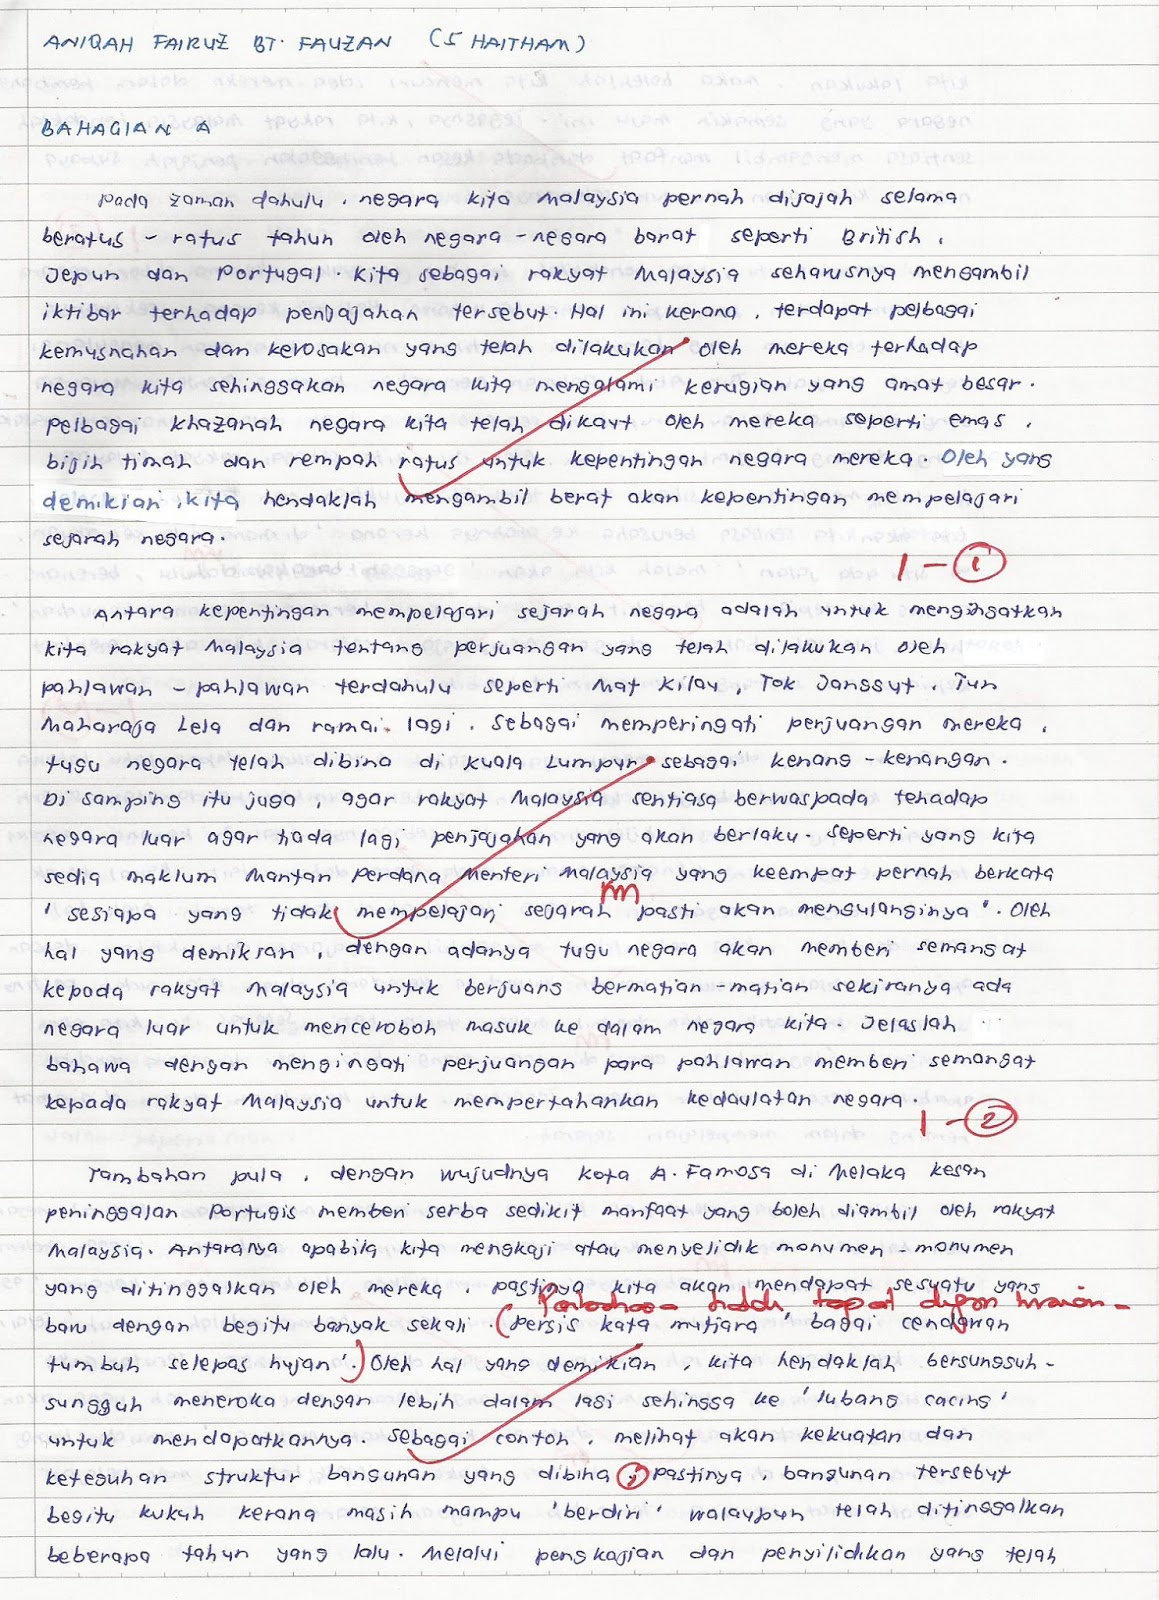 ANIQAH FAIRUZ BT. FAUZAN (5 HAITHAM)
BAHAGIAN A
Pada zaman dahulu, negara kita Malaysia pernah dijajah selama
beratus-ratus tahun oleh negara-negara barat seperti British,
Jepun dan Portugal. Kita sebagai rakyat Malaysia seharusnya mengambil
iktibar terhadap penjajahan tersebut. Hal ini kerana, terdapat pelbagai
kemusnahan dan kerosakan yang telah dilakukan oleh mereka terhadap
negara kita sehinggakan negara kita mengalami kerugian yang amat besar.
Pelbagai khazanah negara kita telah dikaut oleh mereka seperti emas,
bijih timah dan rempah ratus untuk kepentingan negara mereka Oleh yang
demikian, kita hendaklah mengambil berat akan kepentingan mempelajari
sejarah negara.
1 - 1
Antara kepentingan mempelajari sejarah negara adalah untuk mengingatkan
kita rakyat Malaysia tentang perjuangan yang telah dilakukan oleh
pahlawan-pahlawan terdahulu seperti Mat Kilau, Tok Janggut, Tun
Maharaja Lela dan ramai lagi. Sebagai memperingati perjuangan mereka,
tugu negara telah dibina di Kuala Lumpur sebagai kenang-kenangan.
Di samping itu juga, agar rakyat Malaysia sentiasa berwaspada tehadap
negara luar agar tiada lagi penjajahan yang akan berlaku. Seperti yang kita
sedia maklum Mantan Perdana Menteri Malaysia yang keempat pernah berkata
m
'sesiapa yang tidak mempelajari sejarah pasti akan mengulanginya'. Oleh
hal yang demikian, dengan adanya tugu negara akan memberi semangat
kepada rakyat Malaysia untuk berjuang bermatian-matian sekiranya ada
negara luar untuk menceroboh masuk ke dalam negara kita. Jelaslah
bahawa dengan mengingati perjuangan para pahlawan memberi semangat
kepada rakyat Malaysia untuk mempertahankan kedaulatan negara.
1 - 2
Tambahan pula, dengan wujudnya Kota A. Famosa di Melaka kesan
peninggalan Portugis memberi serba sedikit manfaat yang boleh diambil oleh rakyat
Malaysia. Antaranya apabila kita mengkaji atau menyelidik monumen-monumen
yang ditinggalkan oleh mereka, pastinya kita akan mendapat sesuatu yang
tepat
baru dengan begitu banyak sekali. (Persis kata mutiara 'bagai cendawan
tumbuh selepas hujan'.) Oleh hal yang demikian, kita hendaklah bersungguh-
sungguh meneroka dengan lebih dalam lagi sehingga ke 'lubang cacing'
untuk mendapatkannya. Sebagai contoh, melihat akan kekuatan dan
keteguhan struktur bangunan yang dibina, pastinya, bangunan tersebut
begitu kukuh kerana masih mampu 'berdiri' walaupun telah ditinggalkan
beberapa tahun yang lalu. Melalui pengkajian dan penyilidikan yang telah